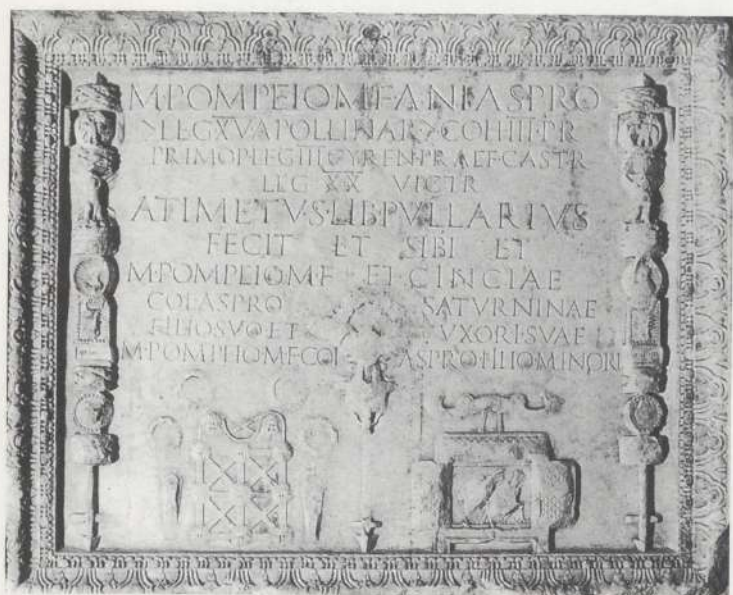 M·POMPEIO·M·F·ANI·ASPRO
> LEG·XV·APOLLINAR > COH·III·PR
PRIMOP·LEG·III·CYREN·PRAEF·CASTR
LEG XX VICTR
ATIMETVS·LIB·PVLLARIVS
FECIT ET SIBI ET
M·POMPEIO·M·F ET CINCIAE
COL·ASPRO SATVRNINAE
FILIO·SVO·ET VXORI·SVAE
M·POMPEIO·M·F·COL ASPRO·FILIO·MINORI